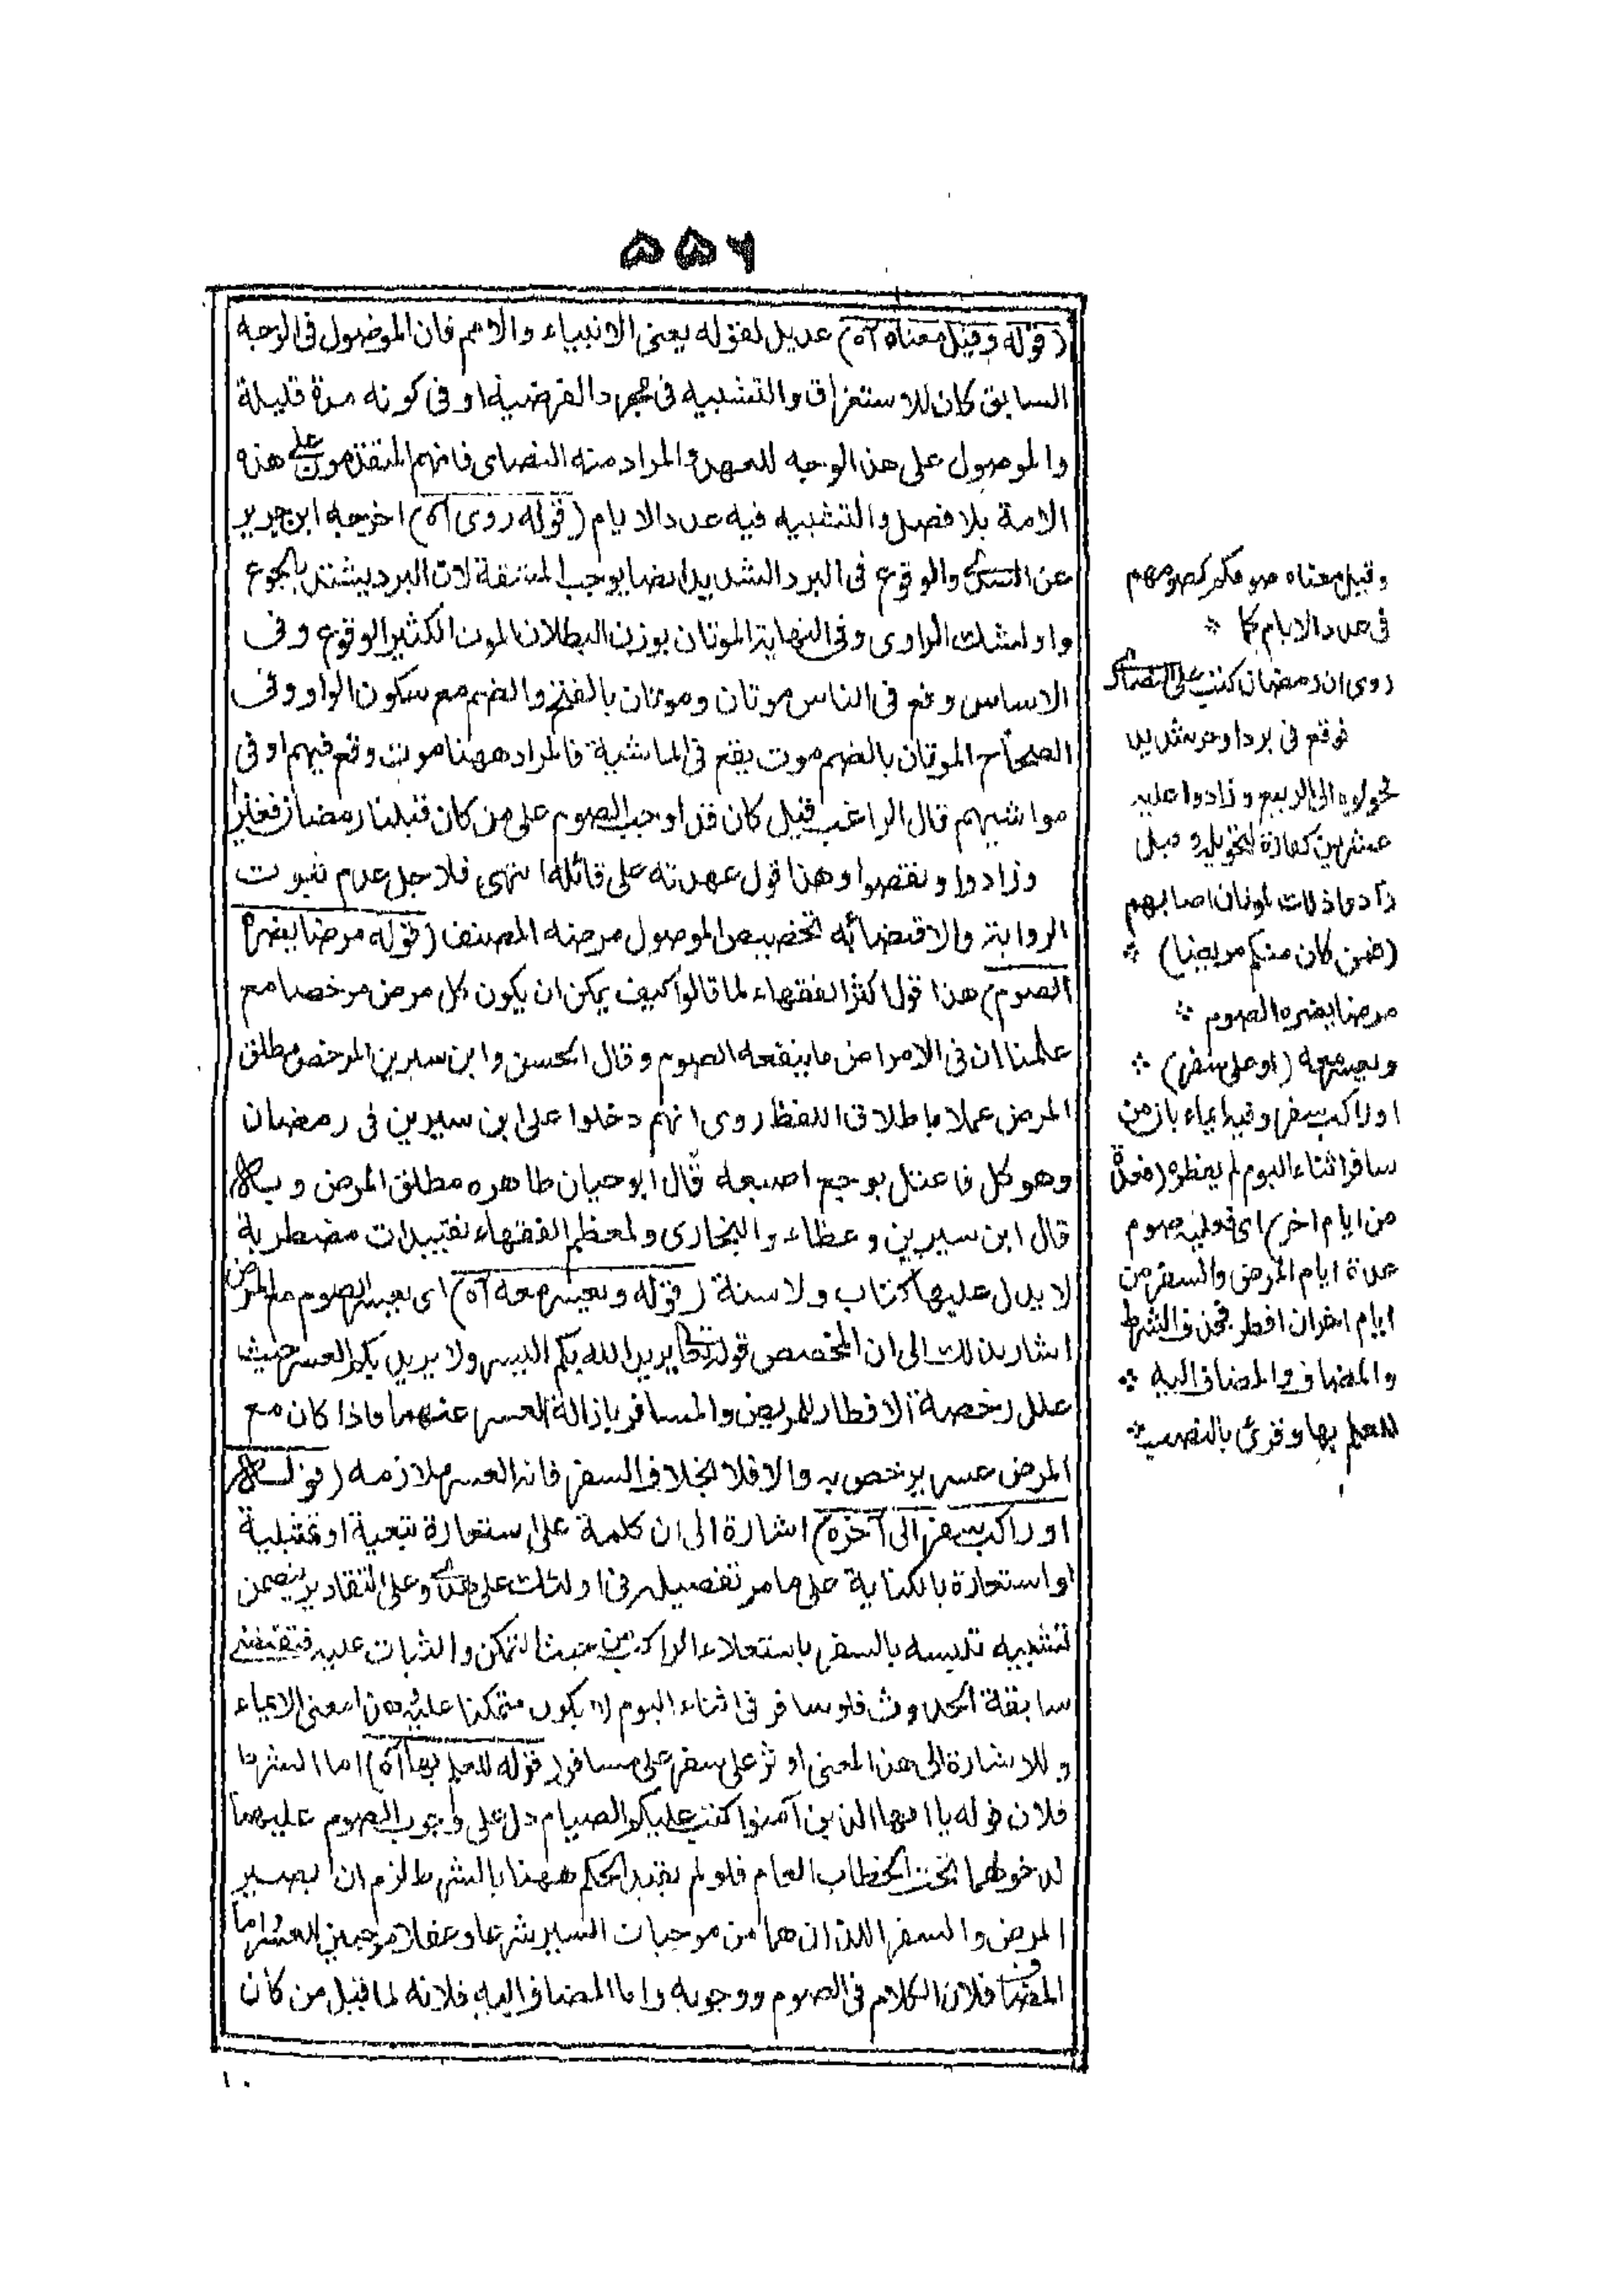 ٥٥٦
(قوله وقيل معناه آه) عديل لقوله يعنى الانبياء والامم فان الموصول فى الوجه
السابق كان للاستغراق والتشبيه فى مجرد الفرضية او فى كونه مدة قليلة
والموصول على هذا الوجه للعهد والمراد منه النصارى فانهم المتقدمون على هذه
الامة بلا فصل والتشبيه فيه عدد الايام (قوله روى آه) اخرجه ابن جرير
عن السدى والوقوع فى البرد الشديد ايضا يوجب المشقة لان البرد يشتد بالجوع
واو لشك الراوى وفى النهاية الموتان بوزن البطلان الموت الكثير الوقوع وفى
الاساس وقع فى الناس موتان وموتان بالفتح والضم مع سكون الواو وفى
الصحاح الموتان بالضم موت يقع فى الماشية فالمراد ههنا موت وقع فيهم او فى
مواشيهم قال الراغب قيل كان قد اوجب الصوم على من كان قبلنا رمضان فغيروا
وزادوا ونقصوا وهذا قول عهدته على قائله انتهى فلاجل عدم ثبوت
الرواية والاقتضائه تخصيص الموصول مرضه المصنف (قوله مرضا يضره
الصوم) هذا قول اكثر الفقهاء لما قالوا كيف يمكن ان يكون كل مرض مرخصا مع
علمنا ان فى الامراض ما ينفعه الصوم وقال الحسن وابن سيرين المرخص مطلق
المرض عملا باطلاق اللفظ روى انهم دخلوا على ابن سيرين فى رمضان
وهو كل فاعتل بوجع اصبعه قال ابوحيان ظاهره مطلق المرض وبه
قال ابن سيرين وعطاء والبخارى ولمعظم الفقهاء تقييدات مضطربة
لا يدل عليها كتاب ولا سنة (قوله ويعسر معه آه) اى يعسر الصوم مع المرض
اشار بذلك الى ان المخصص قوله تعالى يريد الله بكم اليسر ولا يريد بكم العسر حيث
علل رخصة الافطار للمريض والمسافر بازالة العسر عنهما فاذا كان مع
المرض عسر يرخص به والا فلا بخلاف السفر فانه العسر ملازمه (قوله
او راكب سفر الى آخره) اشارة الى ان كلمة على استعارة تبعية او تمثيلية
او استعارة بالكناية على ما مر تفصيله فى اولئك على هدى وعلى التقادير يتضمن
تشبيه تلبسه بالسفر باستعلاء الراكب من حيث التمكن والثبات عليه فتقتضى
سابقة الحدوث فلو سافر فى اثناء اليوم لا يكون متمكنا عليه هذا معنى الايماء
وللاشارة الى هذا المعنى اوثر على سفر على مسافر (قوله للعلم بها آه) اما الشرط
فلان قوله يا ايها الذين آمنوا كتب عليكم الصيام دل على وجوب الصوم عليهما
لدخولهما تحت الخطاب العام فلو لم يقيد الحكم ههنا بالشرط لزم ان يصير
المرض والسفر اللذان هما من موجبات اليسر شرعا وعقلا موجبين للعسر واما
المضاف فلان الكلام فى الصوم ووجوبه واما المضاف اليه فلانه لما قيل من كان
وقيل معناه صومكم كصومهم
فى عدد الايام كما *
روى ان رمضان كتب على النصارى
فوقع فى برد او حر شديد
فحولوه الى الربيع وزادوا عليه
عشرين كفارة لتحويله وقيل
زادوا ذلك لموتان اصابهم
(فمن كان منكم مريضا) *
مرضا يضره الصوم *
ويعسر معه (او على سفر) *
او راكب سفر وفيه ايماء بان من
سافر اثناء اليوم لم يفطره (فعدة
من ايام اخر) اى فعليه صوم
عدة ايام المرض والسفر من
ايام اخر ان افطر فحذف الشرط
والمضاف والمضاف اليه *
للعلم بها وقرئ بالنصب *